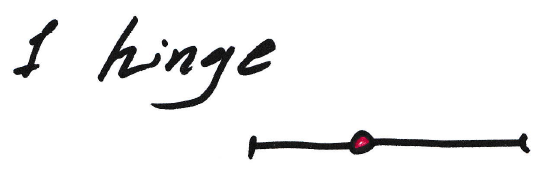 I hinge